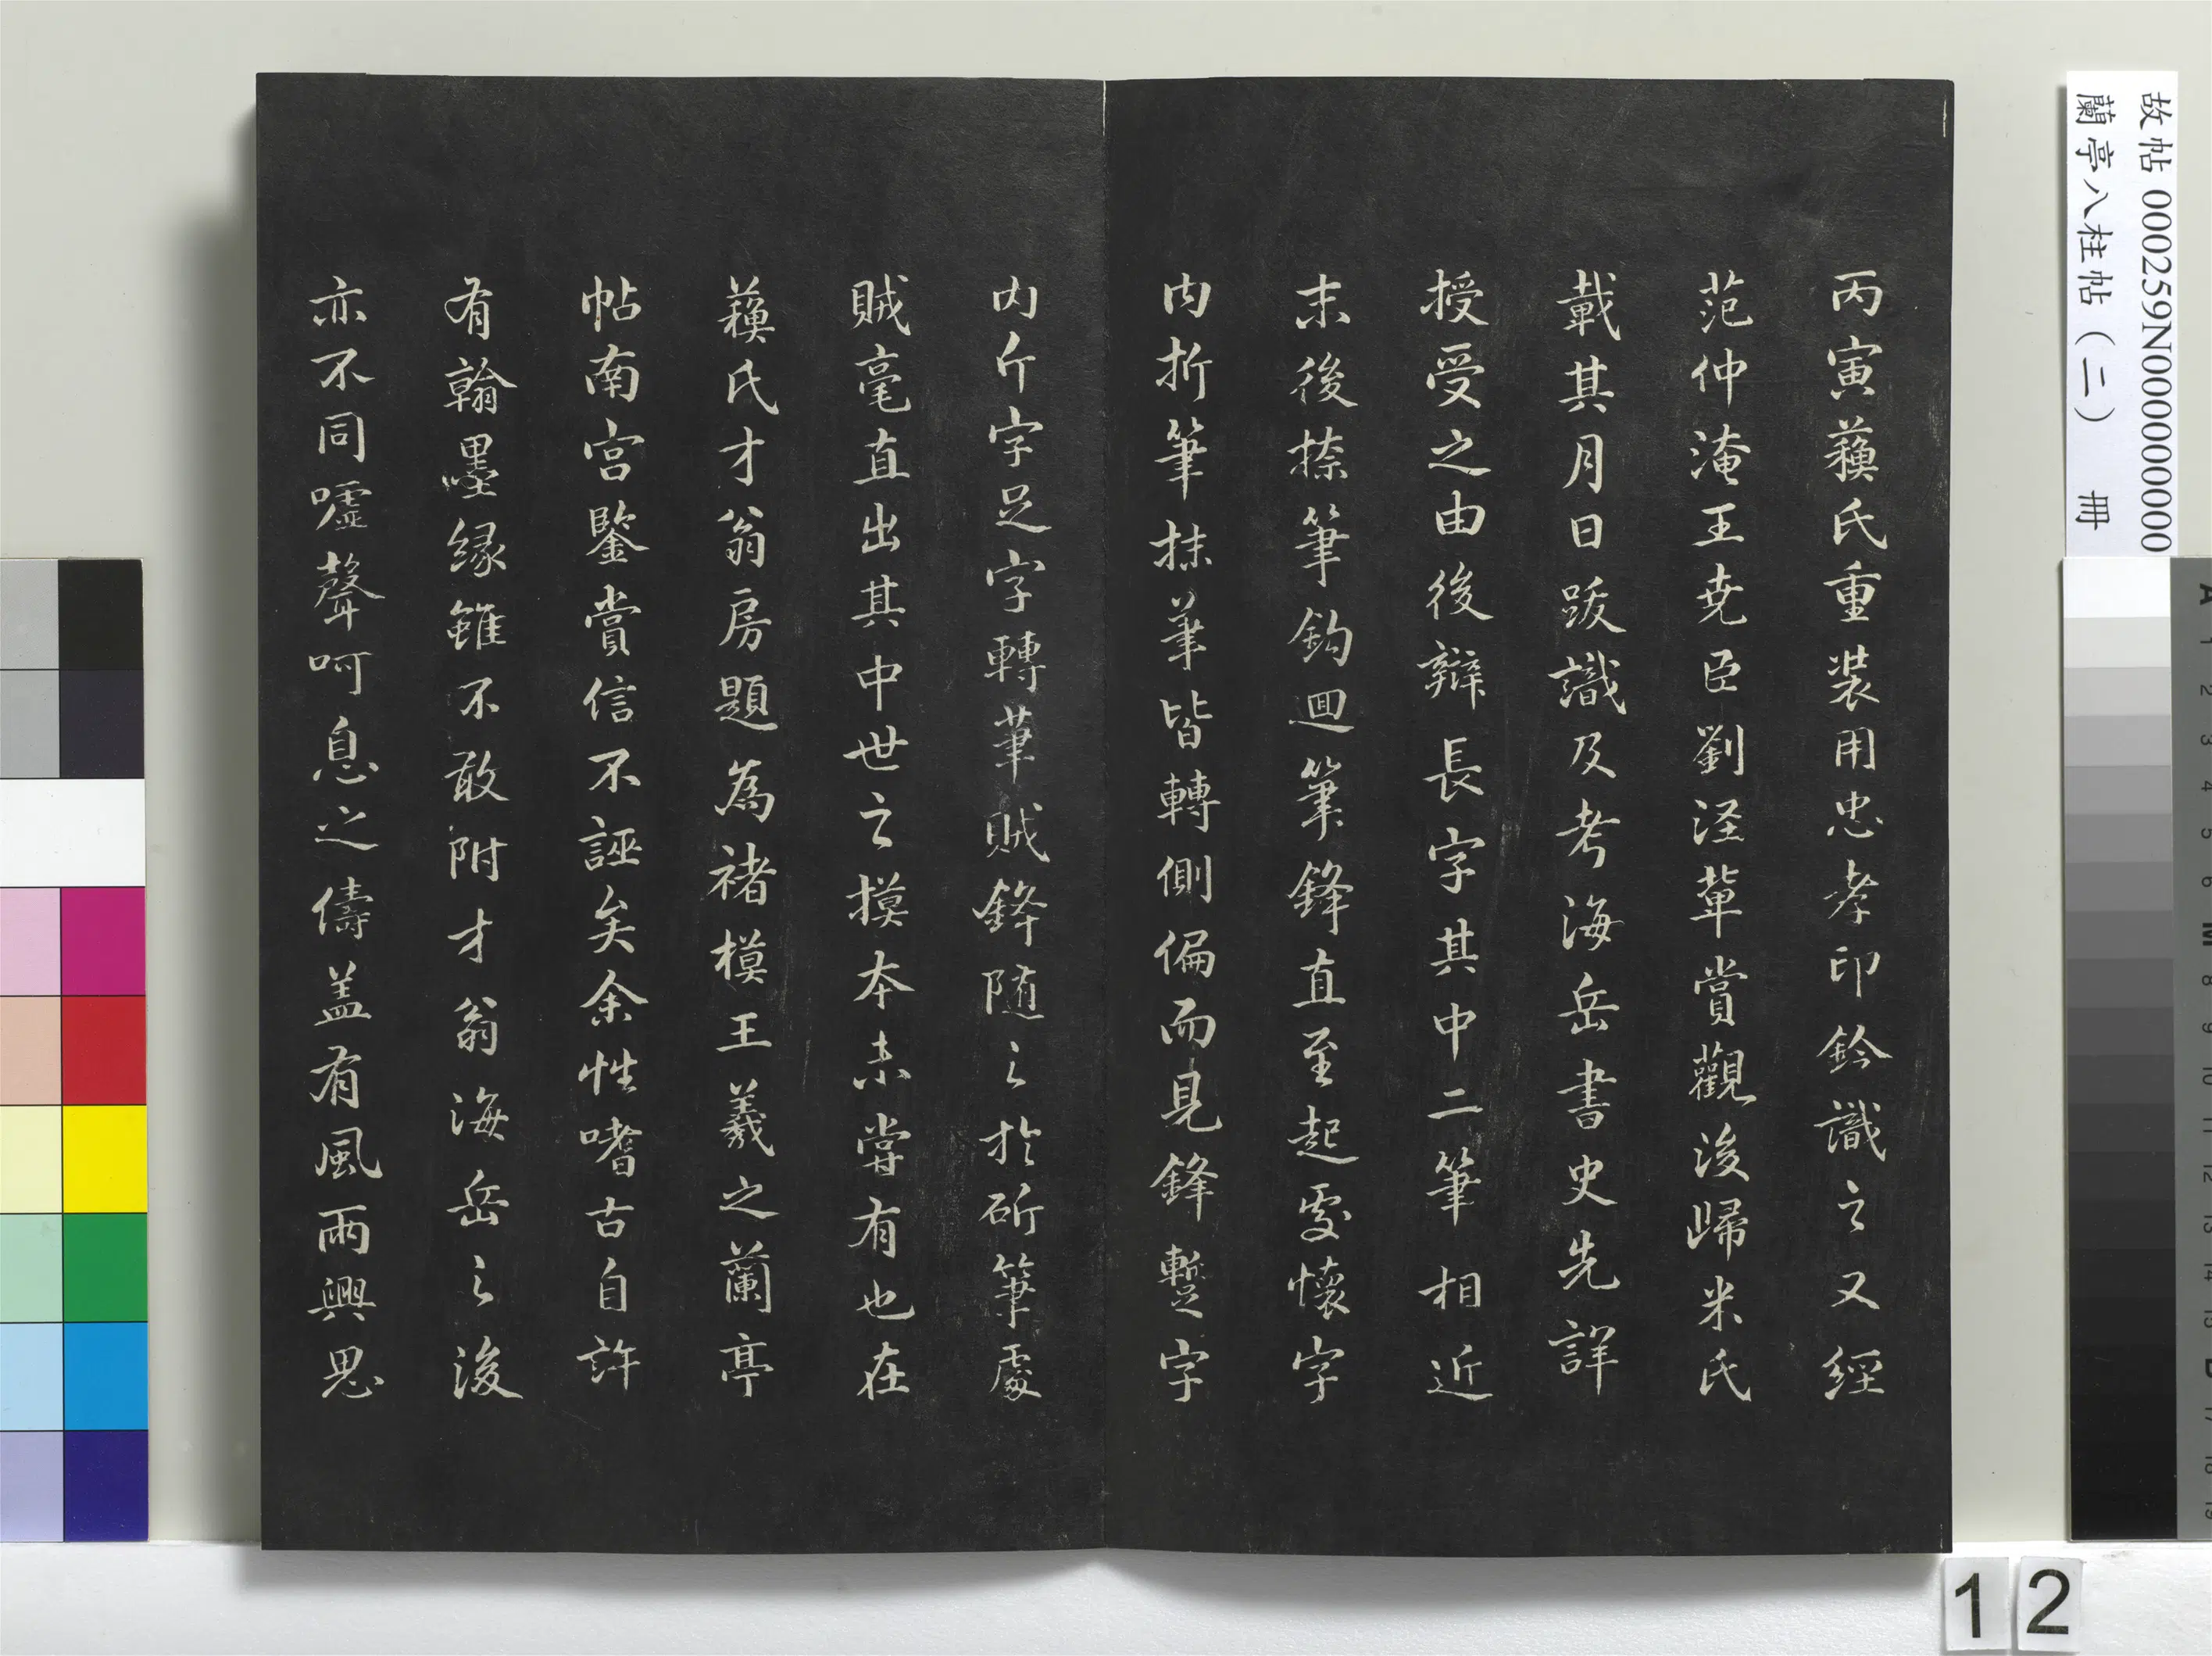 丙寅蘓氏重装用忠孝印鈐識之又經
范仲淹王尭臣劉涇軰賞觀後歸米氏
載其月日跋識及考海岳書史先詳
授受之由後辯長字其中二筆相近
末後捺筆鈎迴筆鋒直至起處懷字
内折筆抹筆皆轉側偏而見鋒蹔字
内斤字足字轉筆賊鋒随之於斫筆處
賊毫直出其中世之摸本未嘗有也在
蘓氏才翁房題為褚模王羲之蘭亭
帖南宫鑒賞信不誣矣余性嗜古自許
有翰墨緣雖不敢附才翁海岳之後
亦不同嘘聲呵息之儔盖有風雨興思
故帖 000259N000000000
蘭亭八柱帖（二） 冊
12
A 1 2 3 4 5 6 M 8 9 10 11 12 13 14 15 B 17 18 19